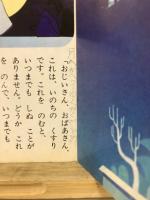 「おじいさん、おばあさん、
これは、いのちの くすり
です。これを のむと、
いつまでも しぬ ことが
ありません。どうか これ
を のんで、いつまでも